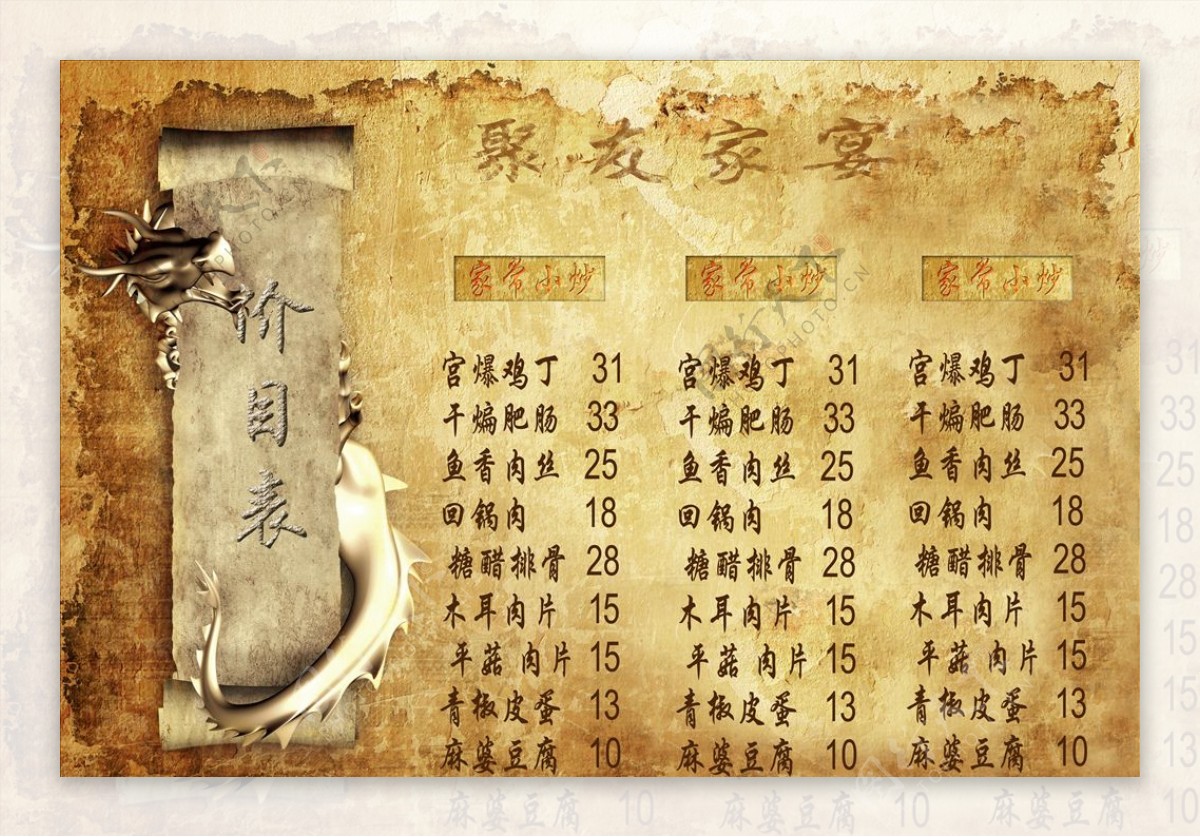 聚友家宴
价目表
家常小炒 家常小炒 家常小炒
宫爆鸡丁 31 宫爆鸡丁 31 宫爆鸡丁 31
干煸肥肠 33 干煸肥肠 33 干煸肥肠 33
鱼香肉丝 25 鱼香肉丝 25 鱼香肉丝 25
回锅肉 18 回锅肉 18 回锅肉 18
糖醋排骨 28 糖醋排骨 28 糖醋排骨 28
木耳肉片 15 木耳肉片 15 木耳肉片 15
平菇肉片 15 平菇肉片 15 平菇肉片 15
青椒皮蛋 13 青椒皮蛋 13 青椒皮蛋 13
麻婆豆腐 10 麻婆豆腐 10 麻婆豆腐 10